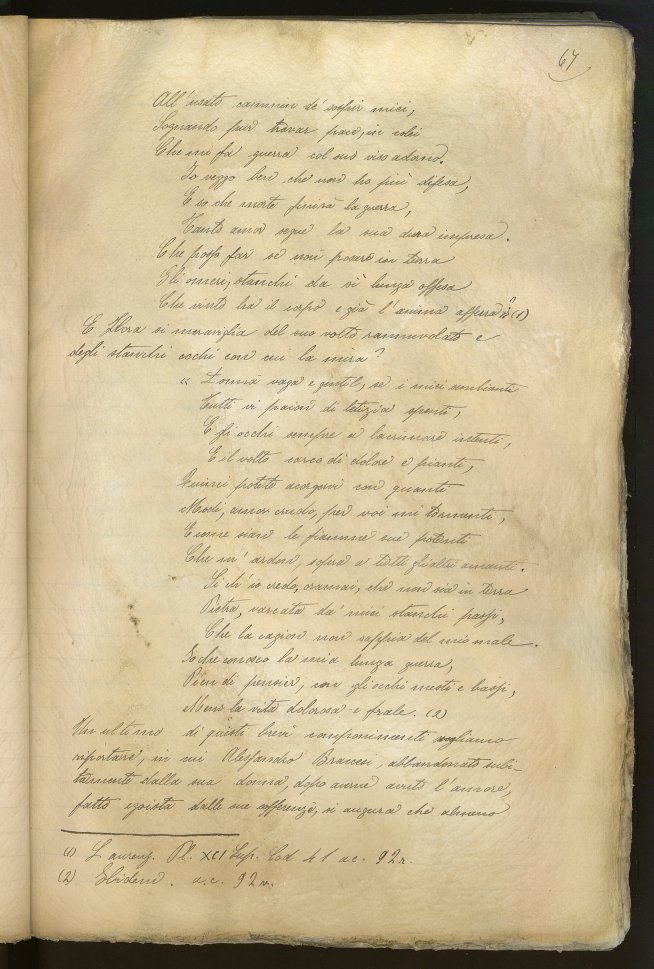 67
All' usato cammin de' sospir miei,
Sognando pur trovar pace, in colei
Che mi fa guerra col suo viso adorno.
Io veggo ben che non ho più difesa,
E so che morte finirà la guerra,
Tanto amor segue la sua dura impresa.
Che posso far se non posare in terra
Gli omeri, stanchi da sì lunga offesa
Che vinto ha il corpo e già l'anima afferra? » (1)
E Flora si meraviglia del suo volto rannuvolato e
degli stanchi occhi con cui la mira?
« Donna vaga e gentil, se i miei sembianti
Tutti vi paion di letizia spenti,
E gli occhi sempre a lacrimare intenti,
E il volto carco di dolore e pianti,
Quinci potete accorgervi con quanti
Modi, amor crudo, per voi mi tormenti,
E come sian le fiamme sue potenti
Che m' ardon, sopra a tutti gli altri amanti.
Sì ch' io credo, oramai, che non sia in terra
Pietra, varcata da' miei stanchi passi,
Che la cagion non sappia del mio male.
Io che conosco la mia lunga guerra,
Pien di pensier, con gli occhi mesti e bassi,
Meno la vita dolorosa e frale. (2)
Un ultimo di questi brevi componimenti vogliamo
riportare, in cui Alessandro Bracesi, abbandonato subi-
tamente dalla sua donna, dopo averne avuto l'amore,
fatto egoista dalle sue sofferenze, si augura che almeno
(1) Laurenz. Pl. XCI Sup. Cod 41 ac. 92 r.
(2) Ibidem. a.c. 92 v.